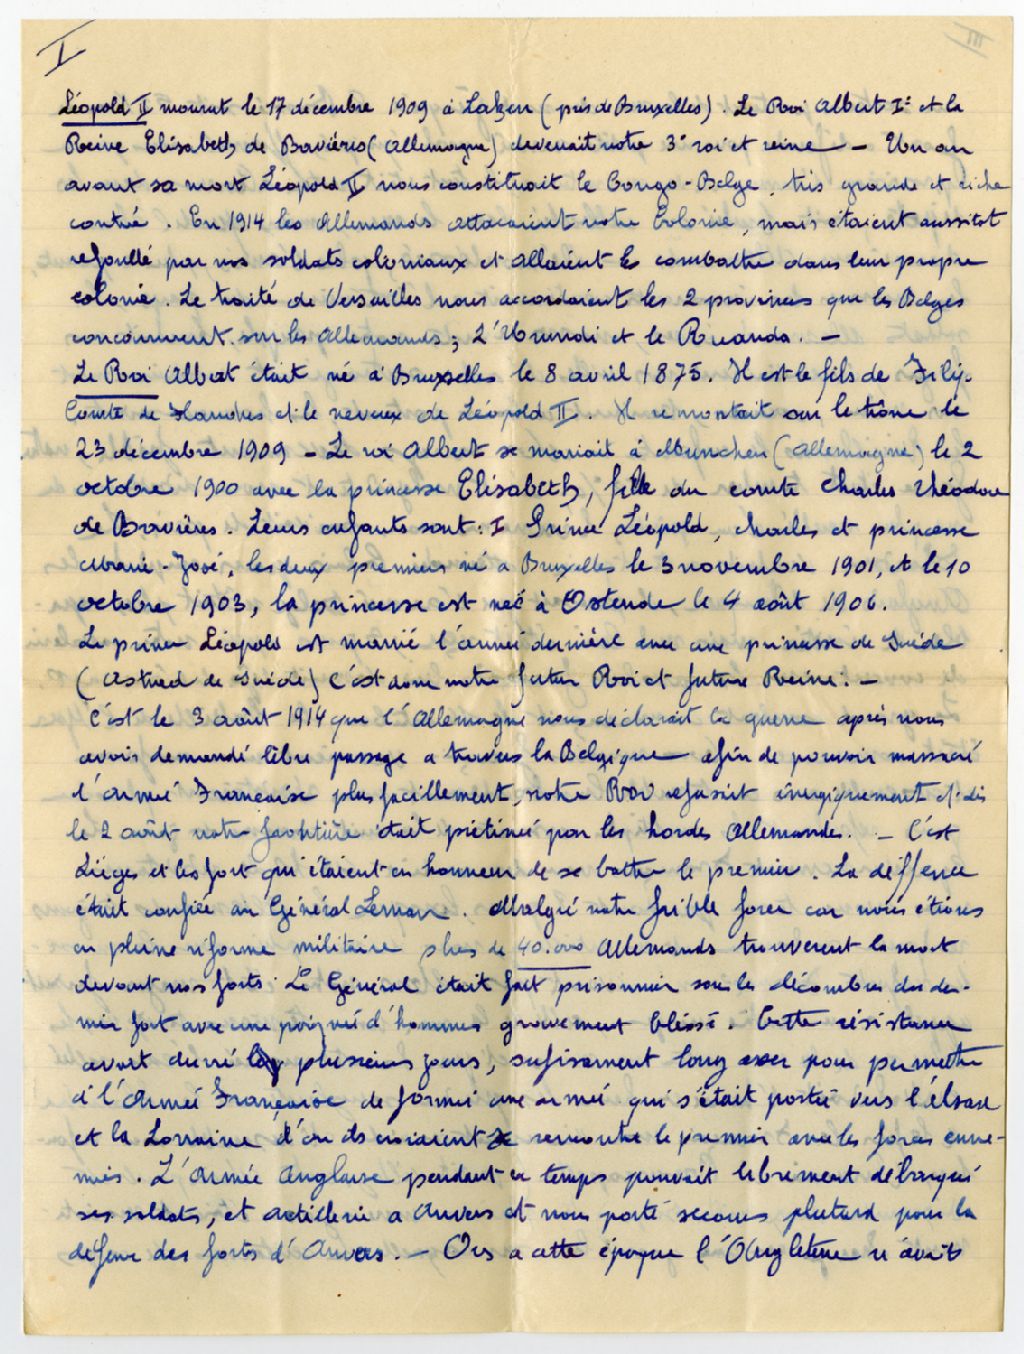 I
III
Léopold II mourut le 17 décembre 1909 à Laken (près de Bruxelles). Le Roi Albert Ie et la
Reine Elisabeth de Bavières (Allemagne) devenait notre 3e roi et reine — Un an
avant sa mort Léopold II nous constituait le Congo-Belge, très grande et riche
contrée. En 1914 les Allemands attacaient notre Colonie, mais étaient aussitot
refoullé par nos soldats coloniaux et allaient les combattre dans leur propre
colonie. Le traité de Versailles nous accordaient les 2 provinces que les Belges
sur les Allemands; L'Urundi et le Ruanda. —
Le Roi Albert était né à Bruxelles le 8 avril 1875. Il est le fils de
Comte de Flandres et le neveux de Léopold II. Il remontait sur le trône le
23 décembre 1909 — Le roi Albert se mariait à Munchen (Allemagne) le 2
octobre 1900 avec la princesse Elisabeth, fille du comte Charles Théodore
de Bavières. Leurs enfants sont: I Prince Léopold, Charles et princesse
Marie-José, les deux premiers né a Bruxelles le 3 novembre 1901, et le 10
octobre 1903, la princesse est neé à Ostende le 4 août 1906.
Le prince Léopold est marrié l'année dernière avec une prinsesse de Suéde
(Astried de Suéde) C'est donc notre futur Roi et future Reine. —
C'est le 3 août 1914 que l'Allemagne nous déclarait la guerre après nous
avoir demandé libre passage a travers la Belgique afin de pouvoir massacré
l'armeé Française plus facillement, notre Roi refusait énergiquement et dès
le 2 août notre était piétineé par les hordes Allemandes. — C'est
Lièges et les fort qui étaient en honneur de se battre le premier. La deffence
était confiée au Général Leman. Malgré notre faible force car nous étions
en pleine réforme militaire plus de 40.000 Allemands trouverent la mort
devant nos forts. Le Général était fait prisonnier sous les décombres du der-
nier fort avec une poigneé d'hommes gravement bléssé. Cette résistance
avait durré plussieurs jours, sufisament long pour permettre
à l'Armeé Françaisse de former une armeé qui s'était porteé vers l'Elsase
et la Lorraine d'ou ils croiaient rencontre le premier avec les forces enne-
mies. L'Armée Anglaise pendant ce temps pouvait librement débarqué
ses soldats, et artillerie a Anvers et nous porté secours plutard pour la
défence des forts d'Anvers. — Ors a cette époque l'Angleterre n'avait